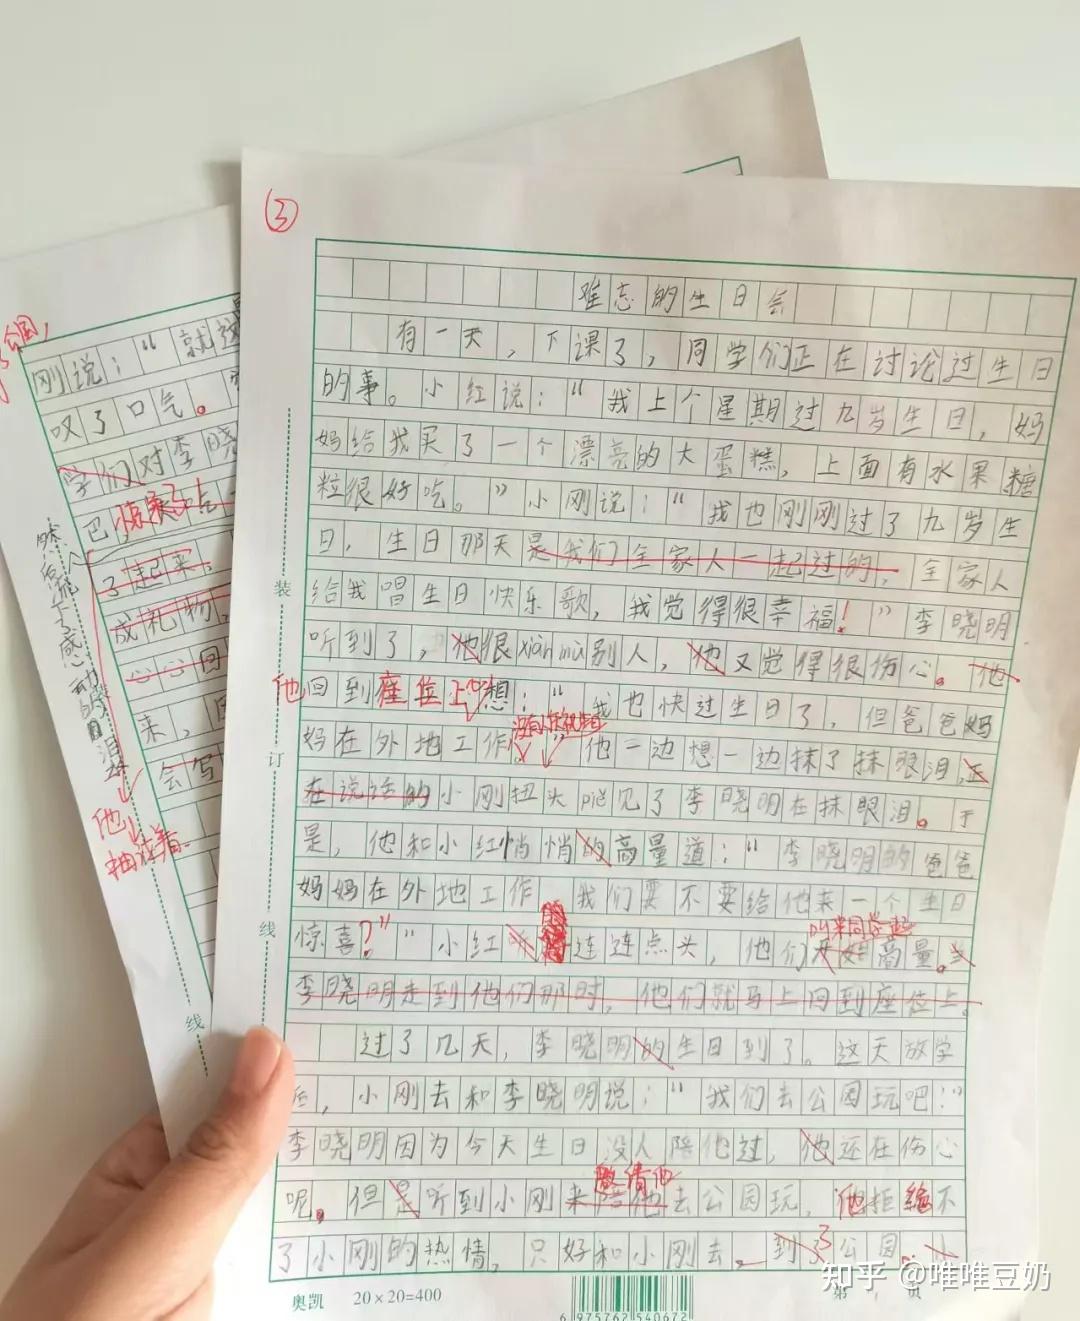 ③
难忘的生日会
有一天，下课了，同学们正在讨论过生日
的事。小红说：“我上个星期过九岁生日，妈
妈给我买了一个漂亮的大蛋糕，上面有水果糖
粒很好吃。”小刚说：“我也刚刚过了九岁生
日，生日那天是我们全家人一起过的，全家人
给我唱生日快乐歌，我觉得很幸福！”李晓明
听到了，他很xiàn mù别人，他又觉得很伤心。他
他回到座位上想：“我也快过生日了，但爸爸妈
妈在外地工作。”他一边想一边抹了抹眼泪，正
在说话的小刚扭头piē见了李晓明在抹眼泪。于
是，他和小红悄悄的高量道：“李晓明的爸爸
妈妈在外地工作 我们要不要给他来一个生日
惊喜？”“小红连连点头，他们开始高量。当
李晓明走到他们那时，他们就马上回到座位上。
过了几天，李晓明的生日到了。这天放学
后，小刚去和李晓明说：“我们去公园玩吧！”
李晓明因为今天生日没人陪他过，他还在伤心
呢。但是听到小刚来陪他去公园玩，他拒绝不
邀请他
了小刚的热情，只好和小刚去。到了公园。小
奥凯 20×20=400
6 975762 540672
第 页
装
订
线
公园，
刚说：“就这
叹了口气。
学们对李晓
巴惊呆了
了起来，
成礼物，
心心回
来，
会写
他
线
知乎 @唯唯豆奶